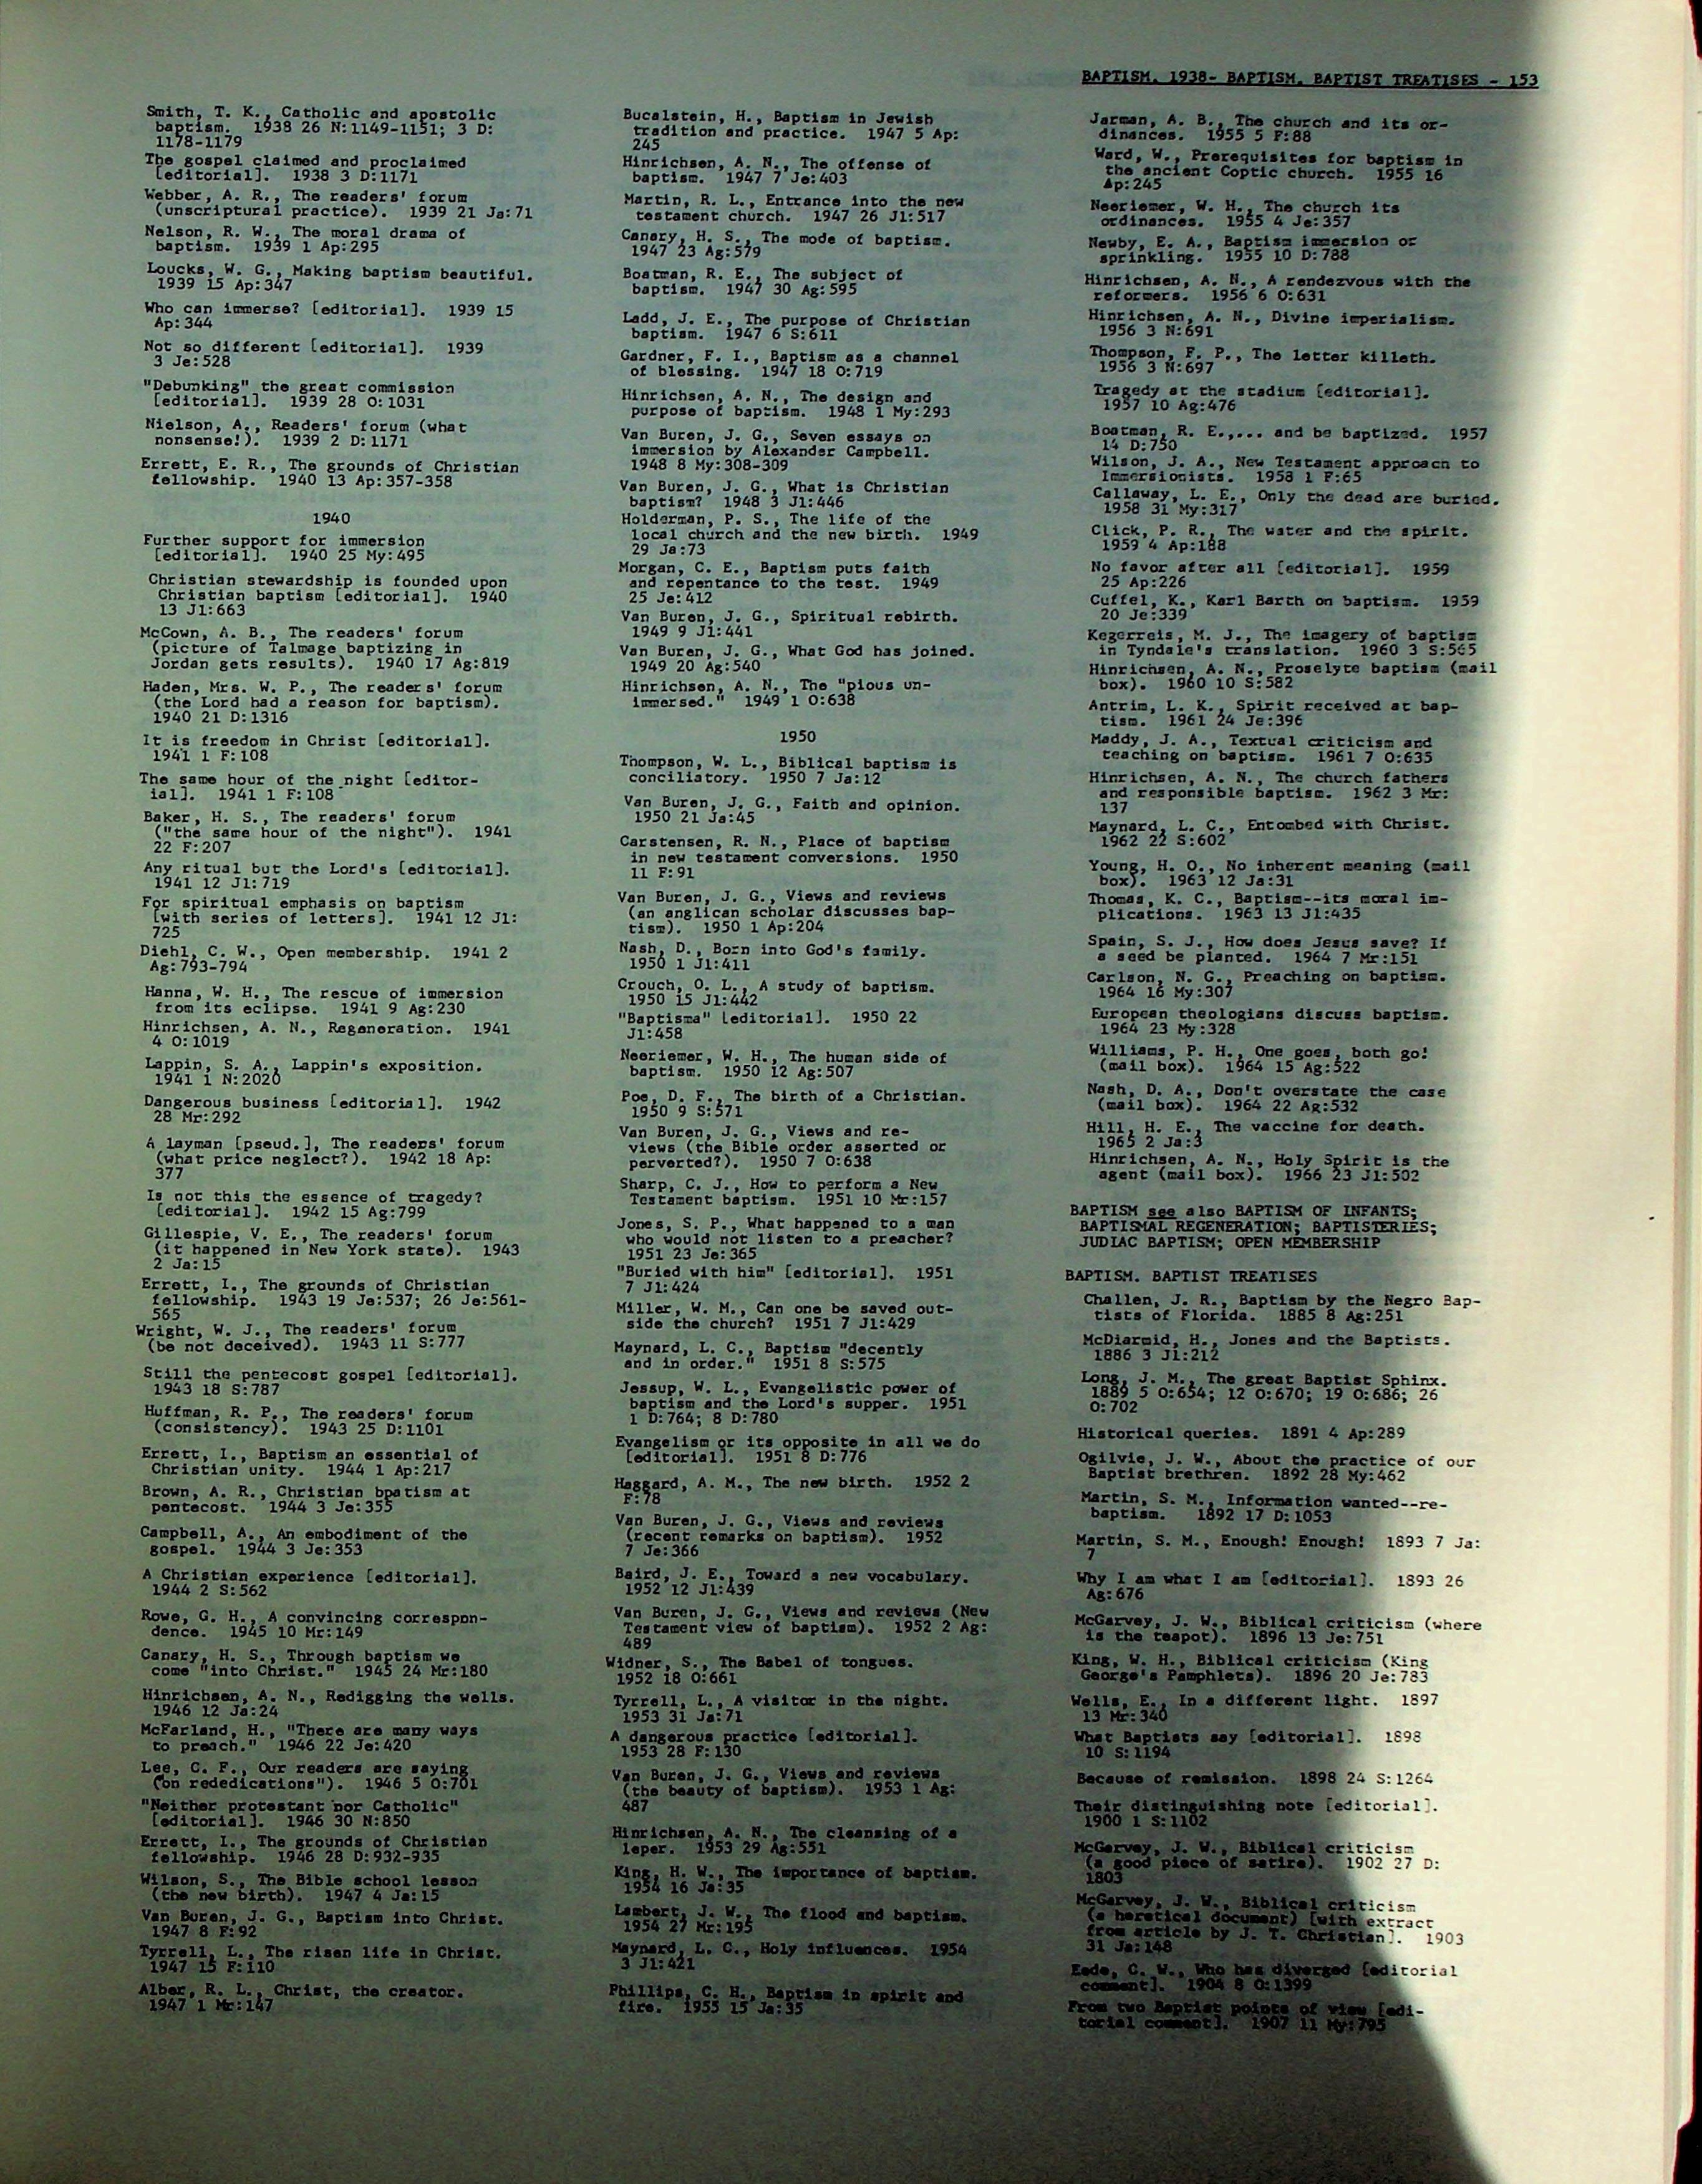 BAPTISM. 1938- BAPTISM. BAPTIST TREATISES - 153
Smith, T. K., Catholic and apostolic
baptism. 1938 26 N:1149-1151; 3 D:
1178-1179
The gospel claimed and proclaimed
[editorial]. 1938 3 D:1171
Webber, A. R., The readers' forum
(unscriptural practice). 1939 21 Ja:71
Nelson, R. W., The moral drama of
baptism. 1939 1 Ap:295
Loucks, W. G., Making baptism beautiful.
1939 15 Ap:347
Who can immerse? [editorial]. 1939 15
Ap:344
Not so different [editorial]. 1939
3 Je:528
"Debunking" the great commission
[editorial]. 1939 28 O:1031
Nielson, A., Readers' forum (what
nonsense!). 1939 2 D:1171
Errett, E. R., The grounds of Christian
fellowship. 1940 13 Ap:357-358
1940
Further support for immersion
[editorial]. 1940 25 My:495
Christian stewardship is founded upon
Christian baptism [editorial]. 1940
13 Jl:663
McCown, A. B., The readers' forum
(picture of Talmage baptizing in
Jordan gets results). 1940 17 Ag:819
Haden, Mrs. W. P., The readers' forum
(the Lord had a reason for baptism).
1940 21 D:1316
It is freedom in Christ [editorial].
1941 1 F:108
The same hour of the night [editor-
ial]. 1941 1 F:108
Baker, H. S., The readers' forum
("the same hour of the night"). 1941
22 F:207
Any ritual but the Lord's [editorial].
1941 12 Jl:719
For spiritual emphasis on baptism
[with series of letters]. 1941 12 Jl:
725
Diehl, C. W., Open membership. 1941 2
Ag:793-794
Hanna, W. H., The rescue of immersion
from its eclipse. 1941 9 Ag:230
Hinrichsen, A. N., Regeneration. 1941
4 O:1019
Lappin, S. A., Lappin's exposition.
1941 1 N:2020
Dangerous business [editorial]. 1942
28 Mr:292
A layman [pseud.], The readers' forum
(what price neglect?). 1942 18 Ap:
377
Is not this the essence of tragedy?
[editorial]. 1942 15 Ag:799
Gillespie, V. E., The readers' forum
(it happened in New York state). 1943
2 Ja:15
Errett, I., The grounds of Christian
fellowship. 1943 19 Je:537; 26 Je:561-
565
Wright, W. J., The readers' forum
(be not deceived). 1943 11 S:777
Still the pentecost gospel [editorial].
1943 18 S:787
Huffman, R. P., The readers' forum
(consistency). 1943 25 D:1101
Errett, I., Baptism an essential of
Christian unity. 1944 1 Ap:217
Brown, A. R., Christian bpatism at
pentecost. 1944 3 Je:355
Campbell, A., An embodiment of the
gospel. 1944 3 Je:353
A Christian experience [editorial].
1944 2 S:562
Rowe, G. H., A convincing correspon-
dence. 1945 10 Mr:149
Canary, H. S., Through baptism we
come "into Christ." 1945 24 Mr:180
Hinrichsen, A. N., Redigging the wells.
1946 12 Ja:24
McFarland, H., "There are many ways
to preach." 1946 22 Je:420
Lee, C. F., Our readers are saying
("on rededications"). 1946 5 O:701
"Neither protestant nor Catholic"
[editorial]. 1946 30 N:850
Errett, I., The grounds of Christian
fellowship. 1946 28 D:932-935
Wilson, S., The Bible school lesson
(the new birth). 1947 4 Ja:15
Van Buren, J. G., Baptism into Christ.
1947 8 F:92
Tyrrell, L., The risen life in Christ.
1947 15 F:110
Alber, R. L., Christ, the creator.
1947 1 Mr:147
Bucalstein, H., Baptism in Jewish
tradition and practice. 1947 5 Ap:
245
Hinrichsen, A. N., The offense of
baptism. 1947 7 Je:403
Martin, R. L., Entrance into the new
testament church. 1947 26 Jl:517
Canary, H. S., The mode of baptism.
1947 23 Ag:579
Boatman, R. E., The subject of
baptism. 1947 30 Ag:595
Ladd, J. E., The purpose of Christian
baptism. 1947 6 S:611
Gardner, F. I., Baptism as a channel
of blessing. 1947 18 O:719
Hinrichsen, A. N., The design and
purpose of baptism. 1948 1 My:293
Van Buren, J. G., Seven essays on
immersion by Alexander Campbell.
1948 8 My:308-309
Van Buren, J. G., What is Christian
baptism? 1948 3 Jl:446
Holderman, P. S., The life of the
local church and the new birth. 1949
29 Ja:73
Morgan, C. E., Baptism puts faith
and repentance to the test. 1949
25 Je:412
Van Buren, J. G., Spiritual rebirth.
1949 9 Jl:441
Van Buren, J. G., What God has joined.
1949 20 Ag:540
Hinrichsen, A. N., The "pious un-
immersed." 1949 1 O:638
1950
Thompson, W. L., Biblical baptism is
conciliatory. 1950 7 Ja:12
Van Buren, J. G., Faith and opinion.
1950 21 Ja:45
Carstensen, R. N., Place of baptism
in new testament conversions. 1950
11 F:91
Van Buren, J. G., Views and reviews
(an anglican scholar discusses bap-
tism). 1950 1 Ap:204
Nash, D., Born into God's family.
1950 1 Jl:411
Crouch, O. L., A study of baptism.
1950 15 Jl:442
"Baptisma" [editorial]. 1950 22
Jl:458
Neeriemer, W. H., The human side of
baptism. 1950 12 Ag:507
Poe, D. F., The birth of a Christian.
1950 9 S:571
Van Buren, J. G., Views and re-
views (the Bible order asserted or
perverted?). 1950 7 O:638
Sharp, C. J., How to perform a New
Testament baptism. 1951 10 Mr:157
Jones, S. P., What happened to a man
who would not listen to a preacher?
1951 23 Je:365
"Buried with him" [editorial]. 1951
7 Jl:424
Miller, W. M., Can one be saved out-
side the church? 1951 7 Jl:429
Maynard, L. C., Baptism "decently
and in order." 1951 8 S:575
Jessup, W. L., Evangelistic power of
baptism and the Lord's supper. 1951
1 D:764; 8 D:780
Evangelism or its opposite in all we do
[editorial]. 1951 8 D:776
Haggard, A. M., The new birth. 1952 2
F:78
Van Buren, J. G., Views and reviews
(recent remarks on baptism). 1952
7 Je:366
Baird, J. E., Toward a new vocabulary.
1952 12 Jl:439
Van Buren, J. G., Views and reviews (New
Testament view of baptism). 1952 2 Ag:
489
Widner, S., The Babel of tongues.
1952 18 O:661
Tyrrell, L., A visitor in the night.
1953 31 Ja:71
A dangerous practice [editorial].
1953 28 F:130
Van Buren, J. G., Views and reviews
(the beauty of baptism). 1953 1 Ag:
487
Hinrichsen, A. N., The cleansing of a
leper. 1953 29 Ag:551
King, H. W., The importance of baptism.
1954 16 Ja:35
Lambert, J. W., The flood and baptism.
1954 27 Mr:195
Maynard, L. C., Holy influences. 1954
3 Jl:421
Phillips, C. H., Baptism in spirit and
fire. 1955 15 Ja:35
Jarman, A. B., The church and its or-
dinances. 1955 5 F:88
Ward, W., Prerequisites for baptism in
the ancient Coptic church. 1955 16
Ap:245
Neeriemer, W. H., The church its
ordinances. 1955 4 Je:357
Newby, E. A., Baptism immersion or
sprinkling. 1955 10 D:788
Hinrichsen, A. N., A rendezvous with the
reformers. 1956 6 O:631
Hinrichsen, A. N., Divine imperialism.
1956 3 N:691
Thompson, F. P., The letter killeth.
1956 3 N:697
Tragedy at the stadium [editorial].
1957 10 Ag:476
Boatman, R. E.,... and be baptized. 1957
14 D:750
Wilson, J. A., New Testament approach to
Immersionists. 1958 1 F:65
Callaway, L. E., Only the dead are buried.
1958 31 My:317
Click, P. R., The water and the spirit.
1959 4 Ap:188
No favor after all [editorial]. 1959
25 Ap:226
Cuffel, K., Karl Barth on baptism. 1959
20 Je:339
Kegerreis, M. J., The imagery of baptism
in Tyndale's translation. 1960 3 S:565
Hinrichsen, A. N., Proselyte baptism (mail
box). 1960 10 S:582
Antrim, L. K., Spirit received at bap-
tism. 1961 24 Je:396
Maddy, J. A., Textual criticism and
teaching on baptism. 1961 7 O:635
Hinrichsen, A. N., The church fathers
and responsible baptism. 1962 3 Mr:
137
Maynard, L. C., Entombed with Christ.
1962 22 S:602
Young, H. O., No inherent meaning (mail
box). 1963 12 Ja:31
Thomas, K. C., Baptism--its moral im-
plications. 1963 13 Jl:435
Spain, S. J., How does Jesus save? If
a seed be planted. 1964 7 Mr:151
Carlson, N. G., Preaching on baptism.
1964 16 My:307
European theologians discuss baptism.
1964 23 My:328
Williams, P. H., One goes, both go!
(mail box). 1964 15 Ag:522
Nash, D. A., Don't overstate the case
(mail box). 1964 22 Ag:532
Hill, H. E., The vaccine for death.
1965 2 Ja:3
Hinrichsen, A. N., Holy Spirit is the
agent (mail box). 1966 23 Jl:502
BAPTISM see also BAPTISM OF INFANTS;
BAPTISMAL REGENERATION; BAPTISTERIES;
JUDIAC BAPTISM; OPEN MEMBERSHIP
BAPTISM. BAPTIST TREATISES
Challen, J. R., Baptism by the Negro Bap-
tists of Florida. 1885 8 Ag:251
McDiarmid, H., Jones and the Baptists.
1886 3 Jl:212
Long, J. M., The great Baptist Sphinx.
1889 5 O:654; 12 O:670; 19 O:686; 26
O:702
Historical queries. 1891 4 Ap:289
Ogilvie, J. W., About the practice of our
Baptist brethren. 1892 28 My:462
Martin, S. M., Information wanted--re-
baptism. 1892 17 D:1053
Martin, S. M., Enough! Enough! 1893 7 Ja:
7
Why I am what I am [editorial]. 1893 26
Ag:676
McGarvey, J. W., Biblical criticism (where
is the teapot). 1896 13 Je:751
King, W. H., Biblical criticism (King
George's Pamphlets). 1896 20 Je:783
Wells, E., In a different light. 1897
13 Mr:340
What Baptists say [editorial]. 1898
10 S:1194
Because of remission. 1898 24 S:1264
Their distinguishing note [editorial].
1900 1 S:1102
McGarvey, J. W., Biblical criticism
(a good piece of satire). 1902 27 D:
1803
McGarvey, J. W., Biblical criticism
(a heretical document) [with extract
from article by J. T. Christian]. 1903
31 Ja:148
Eade, C. W., Who has diverged [editorial
comment]. 1904 8 O:1399
From two Baptist points of view [edi-
torial comment]. 1907 11 My:795